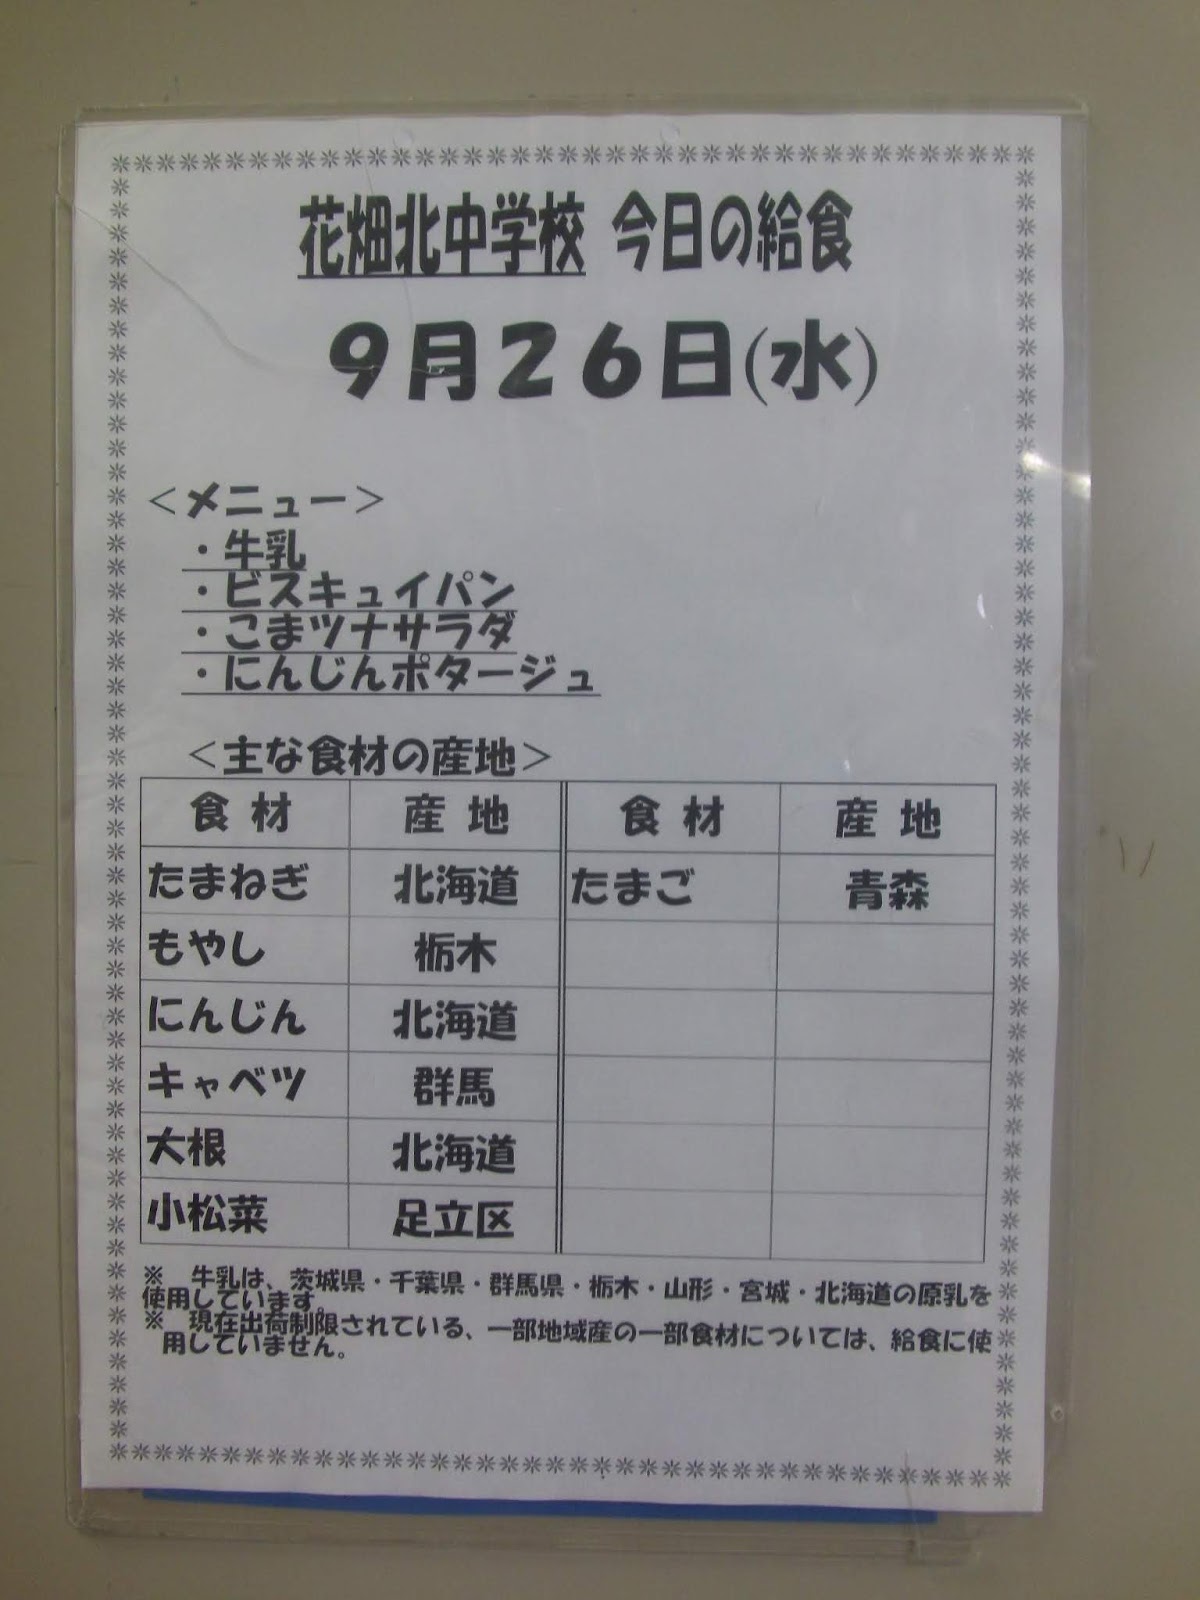 花畑北中学校 今日の給食
９月２６日(水)
＜メニュー＞
・牛乳
・ビスキュイパン
・こまツナサラダ
・にんじんポタージュ
＜主な食材の産地＞
食 材 産 地 食 材 産 地
たまねぎ 北海道 たまご 青森
もやし 栃木
にんじん 北海道
キャベツ 群馬
大根 北海道
小松菜 足立区
※　牛乳は、茨城県・千葉県・群馬県・栃木・山形・宮城・北海道の原乳を
使用しています。
※　現在出荷制限されている、一部地域産の一部食材については、給食に使
用していません。